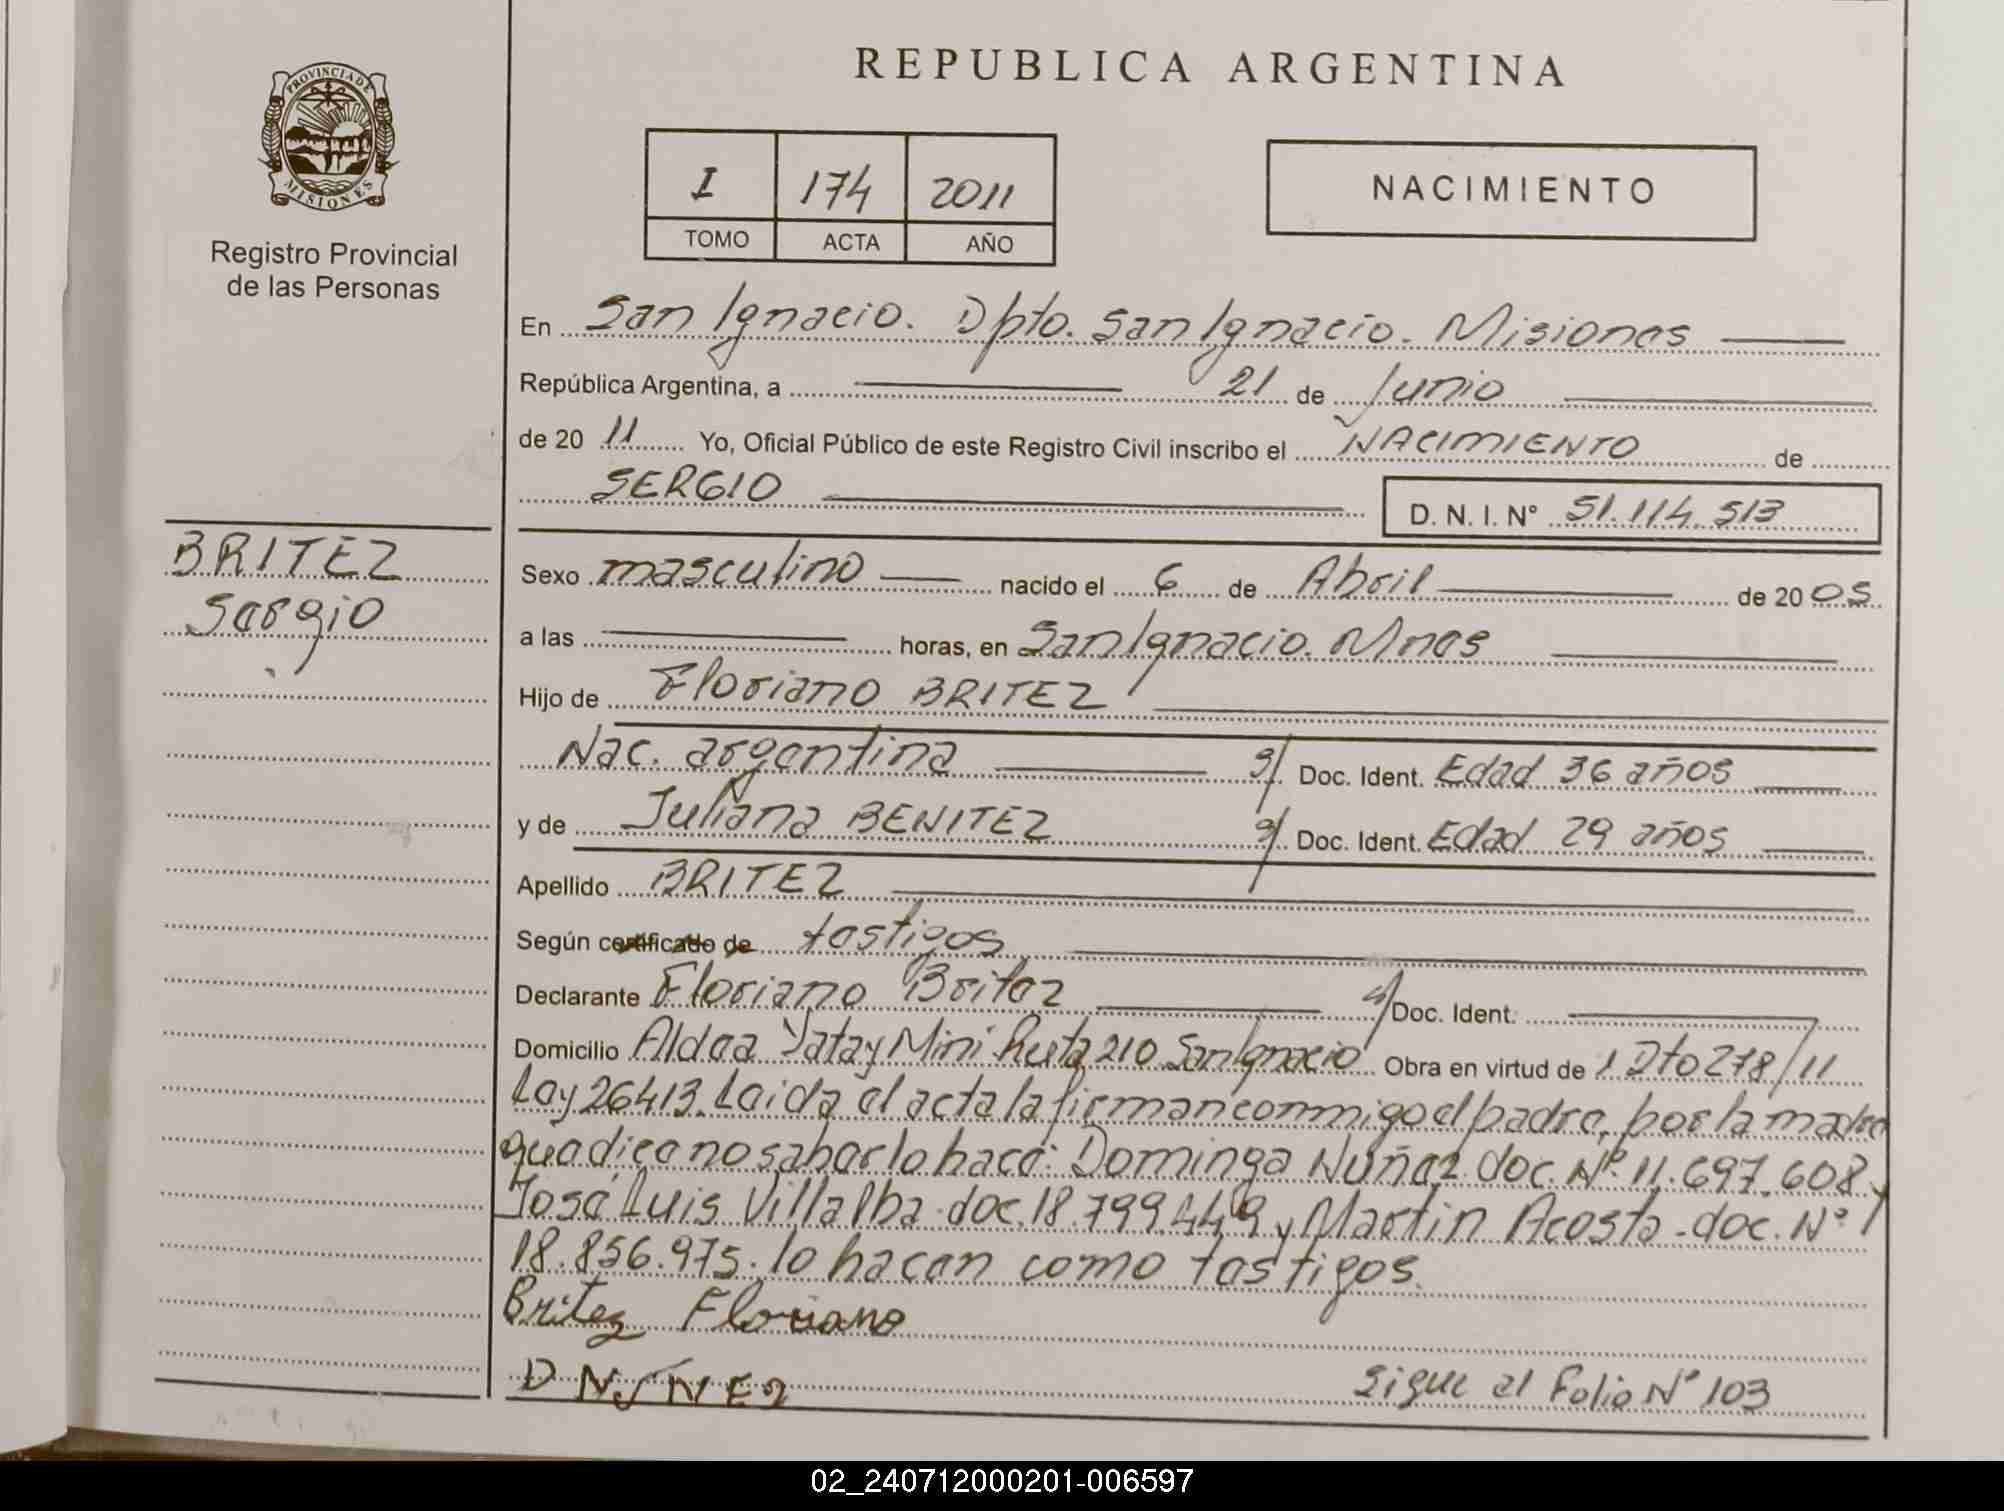 REPUBLICA ARGENTINA
PROVINCIA DE
MISIONES
Registro Provincial
de las Personas
I 174 2011
TOMO ACTA AÑO
NACIMIENTO
En San Ignacio. Dpto. San Ignacio. Misiones
República Argentina, a 21 de Junio
de 2011 Yo, Oficial Público de este Registro Civil inscribo el NACIMIENTO de
SERGIO D. N. I. N° 51.114.513
BRITEZ
Sergio
Sexo masculino nacido el 6 de Abril de 2005
a las horas, en San Ignacio. Mnes
Hijo de Floriano BRITEZ
Nac. argentina Doc. Ident. Edad 36 años
y de Juliana BENITEZ Doc. Ident. Edad 29 años
Apellido BRITEZ
Según certificado de testigos
Declarante Floriano Britez Doc. Ident.
Domicilio Aldea Yatay Mini Ruta 210 San Ignacio Obra en virtud de 1 Dto 278/11
Ley 26413. Leida el acta la firman conmigo el padre, por la madre
que dice no saber lo hace: Dominga Nuñez doc. N° 11.697.608 y
José Luis Villalba doc. 18.799.449 y Martin Acosta - doc. N°
18.856.975. lo hacen como testigos.
Britez Floriano
D NUÑEZ
Sigue al Folio N° 103
02_240712000201-006597